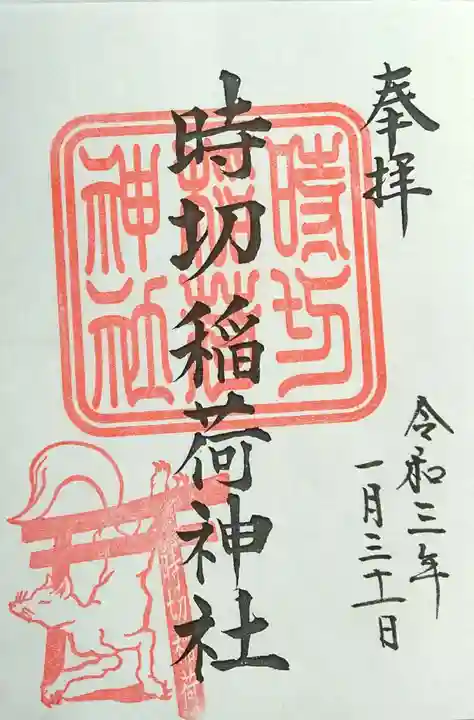 奉拝
令和三年
一月三十一日
時切稲荷神社
時切稲荷神社
時切稲荷